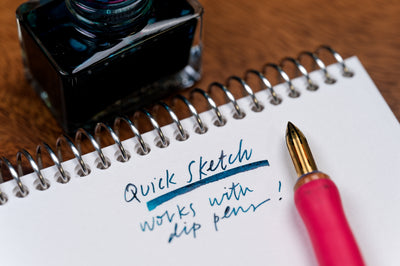 Quick Sketch
works with !
dip pens.